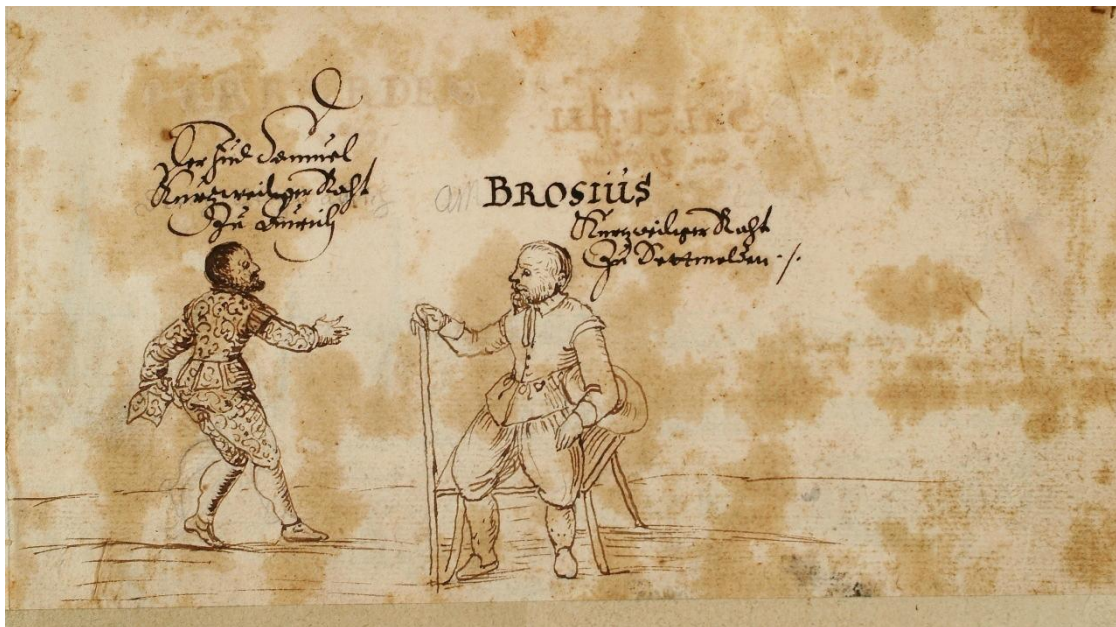 Der Jüd Samuel
Kurtzweiliger Raht
Zu Aurich
BROSIUS
Kurtzweiliger Raht
Zu Dettmolden ./.